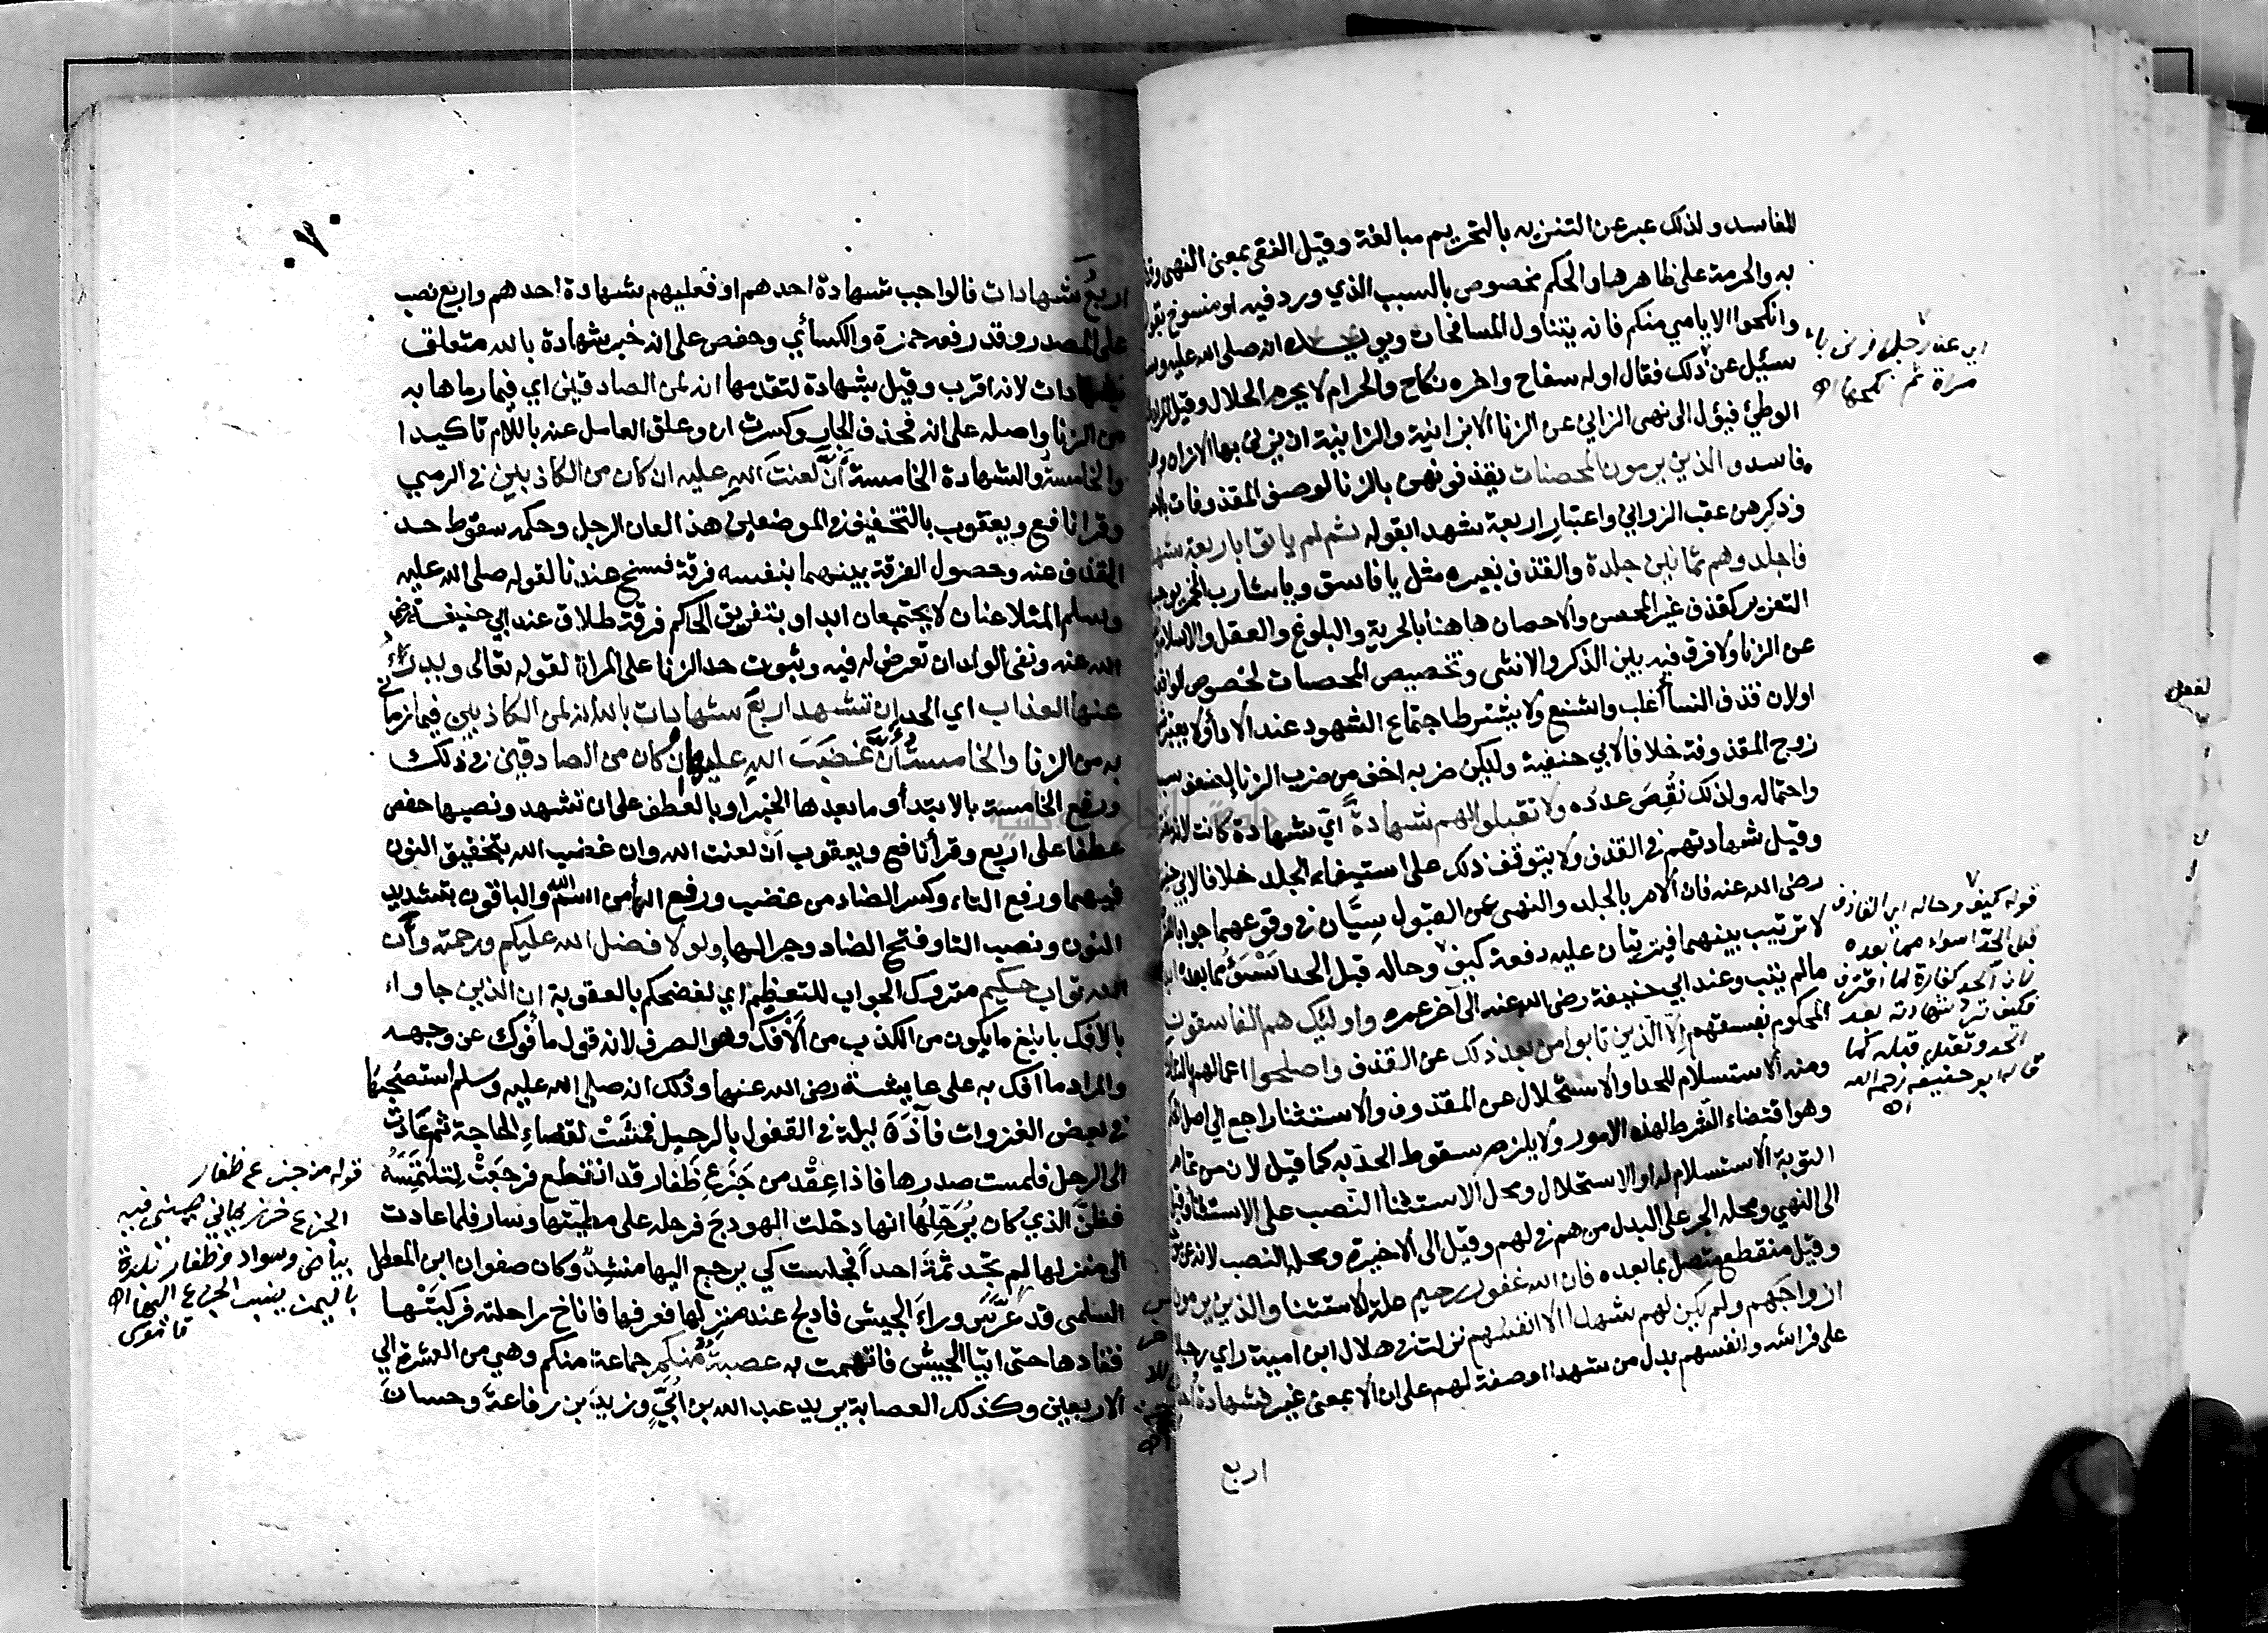 المفاسد ولذلك عبر عن التنزيه بالتحريم مبالغة وقيل النفي بمعنى النهي
به والحرمة على ظاهرها والحكم مخصوص بالسبب الذي ورد فيه او منسوخ بقو
وانكحوا الايامى منكم فانه يتناول المسافحات ويويده انه صلى الله عليه وس
سئيل عن ذلك فقال اوله سفاح واخره نكاح والحرام لا يحرم الحلال وقيل
الوطئ فيؤل الى نهي الزاني عن الزنا الا بزانية والزانية ان يزني بها الا زان و
فاسد والذين يرمون المحصنات يقذفونهن بالزنا لوصف المقذوفات
وذكرهن عقب الزواني واعتبار اربعة شهدا بقوله ثم لم ياتوا باربعة شه
فاجلدوهم ثمانين جلدة والقذف بغيره مثل يا فاسق ويا شارب الخمر يوجب
التعزير كقذف غير المحصن والاحصان هاهنا بالحرية والبلوغ والعقل والاسلام
عن الزنا ولا فرق فيه بين الذكر والانثى وتخصيص المحصنات لخصوص الواقعة
اولان قذف النسا أغلب واشنع ولا يشترط اجتماع الشهود عند الادأ ولا يعتبر
زوج المقذوفة خلافا لابي حنفية وليكن ضربه اخف من ضرب الزنا لضعف سب
واحتماله ولذلك نُقِصَ عدده ولا تقبلوا لهم شهادةً ايَّ شهادة كانت لانه
وقيل شهادتهم في القذف ولا يتوقف ذلك على استيفاء الجلد خلافا لابي
رضى الله عنه فان الامر بالجلد والنهي عن القبول سِيَّان في وقوعهما جوابا
لا ترتيب بينهما فيترتبان عليه دفعة كيف وحاله قبل الحد اَسْوَؤ مما بعده
مالم يتب وعند ابي حنيفة رضى الله عنه الى آخر عمره واولئك هم الفاسقون
المحكوم بفسقهم اِلّا الذين تابوا من بعد ذلك عن القذف واصلحوا اعمالهم
ومنه الاستسلام للحد او الاستحلال عن المقذوف والاستثنا راجع الى اصل
وهو اقتضاء الشرط لهذه الامور ولا يلزم سقوط الحد به كما قيل لان من تمام
التوبة الاستسلام له او الاستحلال ومحل الاستثنا النصب على الاستثنا
الى النهي ومحله الجر على البدل من هم في لهم وقيل الى الاخيرة ومحله النصب لانه
وقيل منقطع متصل بما بعده فان الله غفور رحيم علة الاستثنا والذين يرمون
ازواجهم ولم يكن لهم شهدا الا انفسهم نزلت في هلال ابن امية راى رجلا
على فراشه وانفسهم بدل من شهدا اوصفة لهم على ان الا بمعنى غير فشهادة
اربع
مراة ثم نكحها اه
قوله كيف وحاله اي القاذف
قبل الحد اسواء مما بعده
لان الحد كفارة لما اقترف
فكيف ترد شهادته بعد
الحد وتقبل قبله كما
قاله ابو حنيفة رحمه الله
اه
اربعُ شهادات فالواجب شهادة احدهم او فعليهم شهادة احدهم واربع نصب
على المصدر وقد رفعه حمزة والكسائي وحفص على انه خبر شهادة بالله متعلق
بشهادات لانه اقرب وقيل بشهادة لتقدمها انه لمن الصادقين اي فيما رماها به
من الزنا واصله على انه فحذف الجار وكسرت ان وعلق العامل عنه باللام تاكيدا
والخامسة والشهادة الخامسة أَنَّ لعنتَ اللهِ عليه ان كان من الكاذبين في الرمي
وقرا نافع ويعقوب بالتخفيف في الموضعين هذا لعان الرجل وحكمه سقوط حد
القذف عنه وحصول الفرقة بينهما بنفسه فرقة فسخ عندنا لقوله صلى الله عليه
وسلم المتلاعنان لا يجتمعان ابدا وبتفريق الحاكم فرقة طلاق عند ابي حنيفة رضى
الله عنه ونفى الولد ان تعرض له فيه وثبوت حد الزنا على المراة لقوله تعالى ويدرؤ
عنها العذاب اي الحد ان تشهد اربعَ شهادات بالله انه لمن الكاذبين فيما رماني
به من الزنا والخامسةُ أَنَّ غضبَ اللهِ عليها ان كان من الصادقين في ذلك
ورفع الخامسة بالابتدأ وما بعدها الخبر او بالعطف على ان تشهد ونصبها حفص
عطفا على اربع وقرأ نافع ويعقوب اَنْ لعنت الله وان غضب الله بتخفيف النون
فيهما ورفع التاء وكسر الضاد من غضب ورفع الهأ من اسم الله والباقون بتشديد
النون ونصب التا وفتح الضاد وجر الهاء ولولا فضل الله عليكم ورحمته وأَن
الله تواب حكيم متروك الجواب للتعظيم اي لفضحكم بالعقوبة ان الذين جاواء
بالافك بابلغ ما يكون من الكذب من الأَفك وهو الصرف لانه قول مأفوك عن وجهه
والمراد ما افك به على عايشة رضى الله عنها وذلك انه صلى الله عليه وسلم استصحبها
في بعض الغزوات فآذَنَ ليلة في القفول بالرحيل فمشَتْ لقضاءِ الحاجة ثم عادت
الى الرحل فلمست صدرها فاذا عِقْد من جَزْعِ ظَفار قد انقطع فرجعَتْ لتلتمِسَهُ
فظنَّ الذي كان يُرَحِّلُها انها دخلت الهودجَ فرحله على مطيّتها وسار فلما عادت
الى منزلها لم تجد ثمة احدا فجلست كي يرجع اليها منشِدٌ وكان صفوان ابن المعطل
السلمى قد عَرَّسَ وراءَ الجيش فادلج عند منزلها فعرفها فاناخ راحلته فركبَتْها
فقادها حتى اتيا الجيش فاتهمت به عصبةٌ منكم جماعة منكم وهي من العشرة الي
الاربعين وكذلك العصابة يريد عبد الله بن اُبَيٍّ وزيدَ بن رفاعةَ وحسانَ
قوله من جزع ظفار
الجزع خرز يماني صيني فيه
بياض وسواد وظفار بلدة
باليمن ينسب الجزع اليها اه